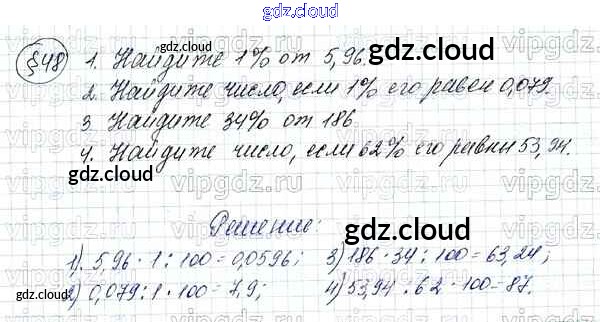 gdz.cloud
§48 1. Найдите 1% от 5,96.
2. Найдите число, если 1% его равен 0,079.
3. Найдите 34% от 186
4. Найдите число, если 62% его равны 53,94.
Решение:
1) 5,96 · 1 : 100 = 0,0596; 3) 186 · 34 : 100 = 63,24;
2) 0,079 : 1 · 100 = 7,9; 4) 53,94 : 62 · 100 = 87.
gdz.cloud
gdz.cloud
gdz.cloud
gdz.cloud
gdz.cloud
gdz.cloud
gdz.cloud
vipgdz.ru